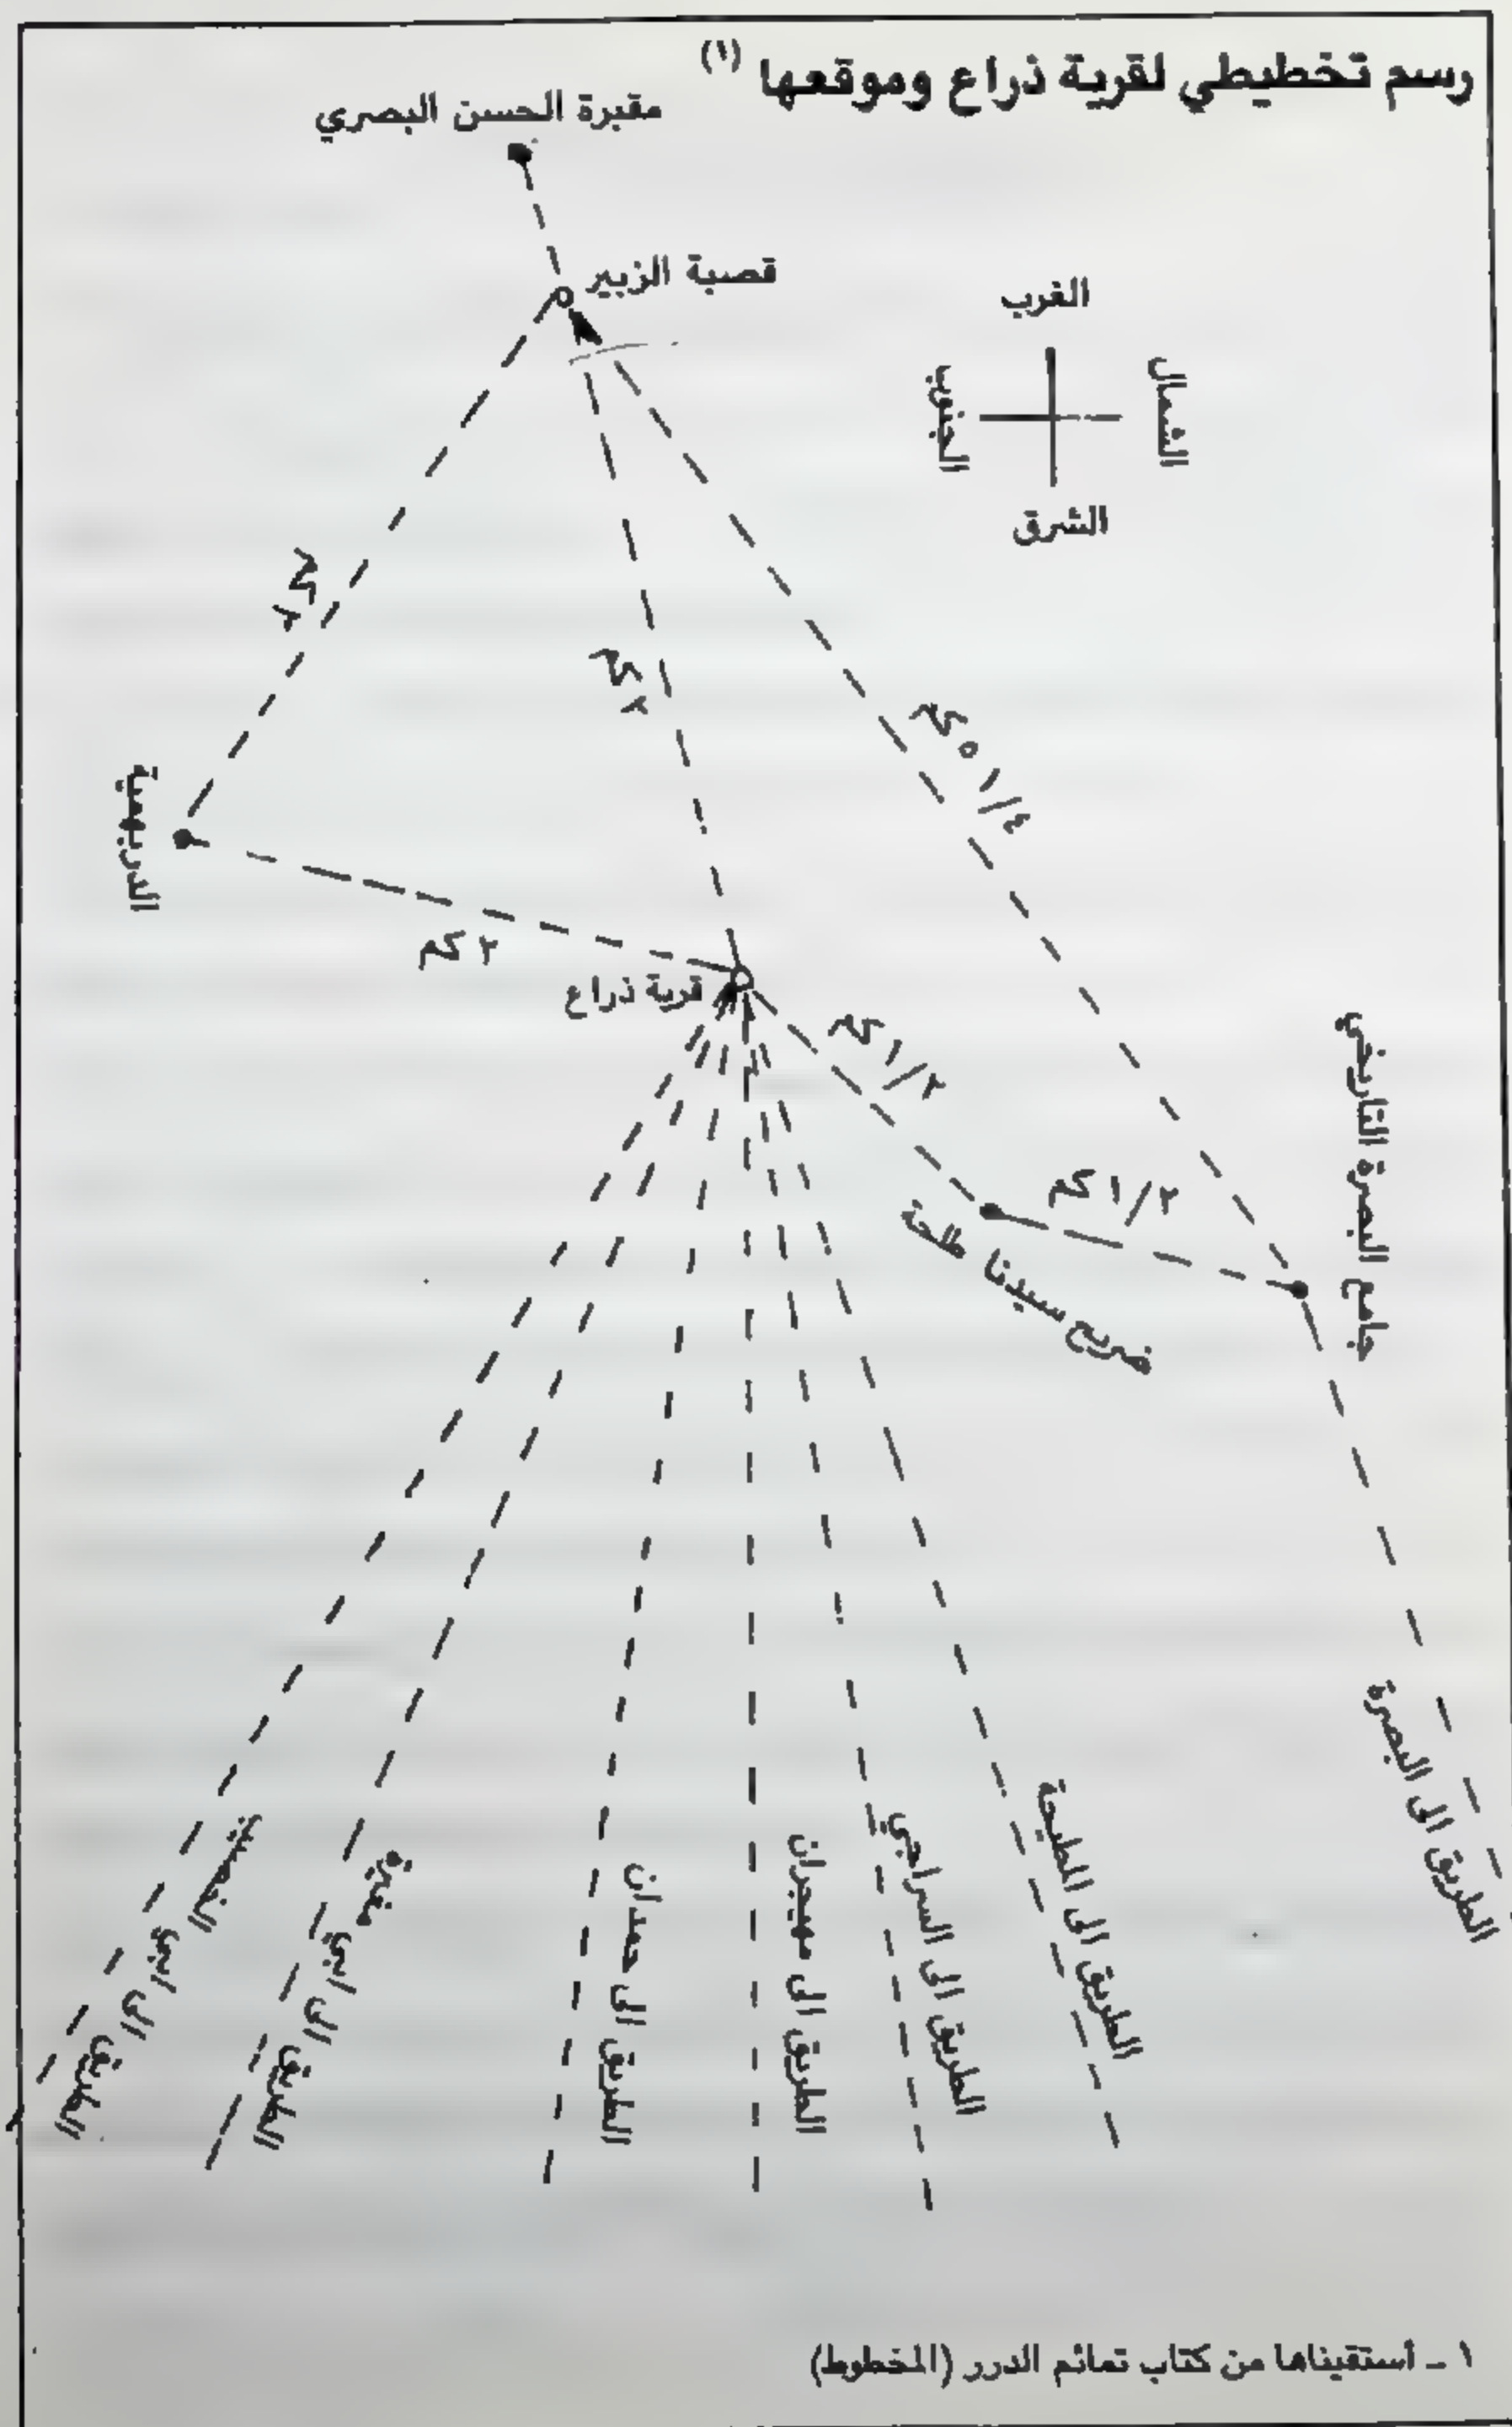 رسم تخطيطي لقرية ذراع وموقعها (١)
مقبرة الحسن البصري
قصبة الزبير
الغرب
الشمال
الجنوب
الشرق
٢ كم
٥ ١/٤ كم
الدريهمية
٢ كم
قرية ذراع
١/٢ كم
جامع البصرة التاريخي
١/٢ كم
ضريح سيدنا طلحة
الطريق الى البصرة
الطريق الى المطيحة
الطريق الى السراجي
الطريق الى مهيجران
الطريق الى حمدان
الطريق الى ابي مغيرة
الطريق الى ابي الخصيب
١ ـ أستقيناها من كتاب تمائم الدرر (المخطوط)